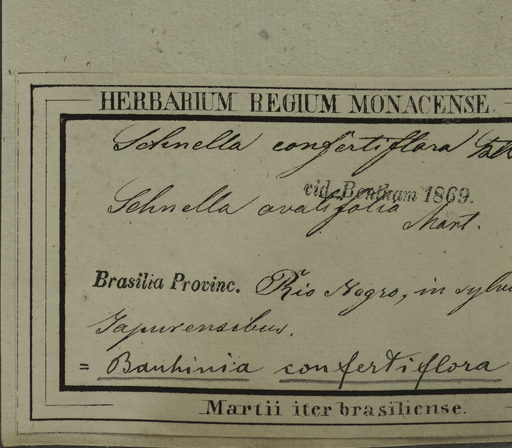 HERBARIUM REGIUM MONACENSE.
Schnella confertiflora
vid. Bentham 1869.
Schnella ovalifolia
Mart.
Brasilia Provinc. Rio Negro, in sylv
Japurensibus.
= Bauhinia confertiflora
Martii iter brasiliense.